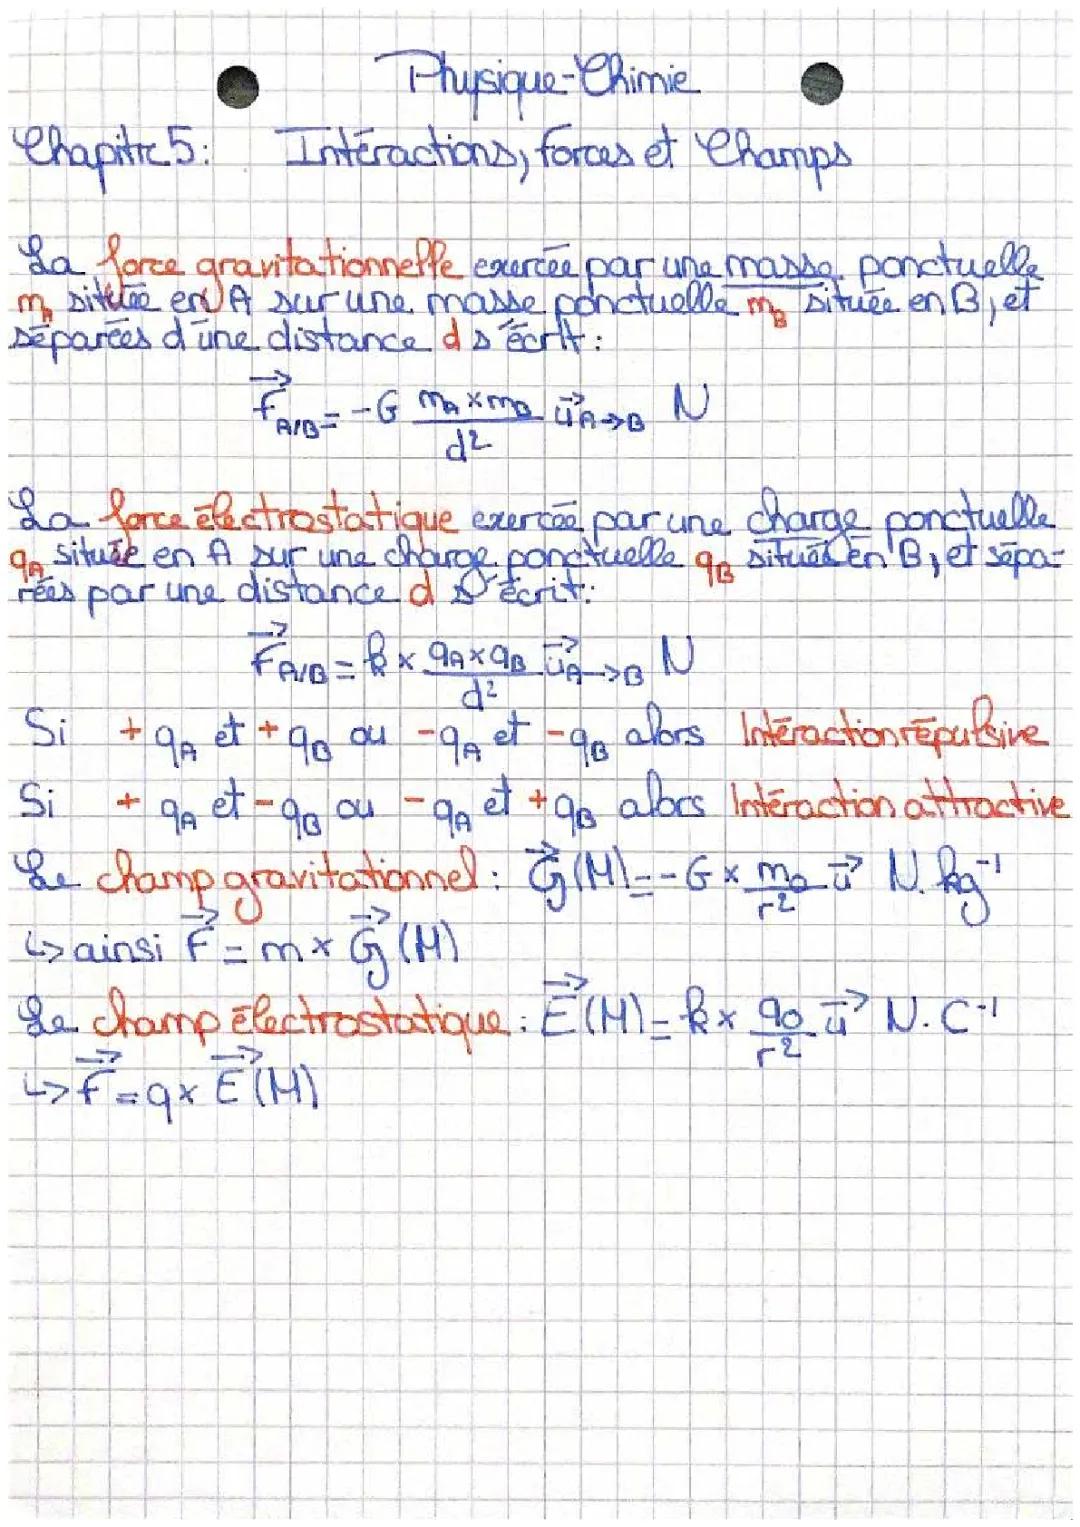 Physique-Chimie
Chapitre 5: Intéractions, forces et Champs
La force gravitationnelle exercée par une masse ponctuelle
mA située en A sur une masse ponctuelle mB située en B, et
séparées d'une distance d s'écrit:
F⃗A/B = -G (mA × mB)/d² u⃗A→B N
La force électrostatique exercée par une charge ponctuelle
qA située en A sur une charge ponctuelle qB située en B, et sépa-
rées par une distance d s'écrit:
F⃗A/B = k × (qA × qB)/d² u⃗A→B N
Si +qA et +qB ou -qA et -qB alors Intéraction répulsive
Si +qA et -qB ou -qA et +qB alors Intéraction attractive
Le champ gravitationnel: G⃗(M) = -G × m₀/r² u⃗ N.kg⁻¹
↳ ainsi F⃗ = m × G⃗(M)
Le champ électrostatique: E⃗(M) = k × q₀/r² u⃗ N.C⁻¹
↳ F⃗ = q × E⃗(M)